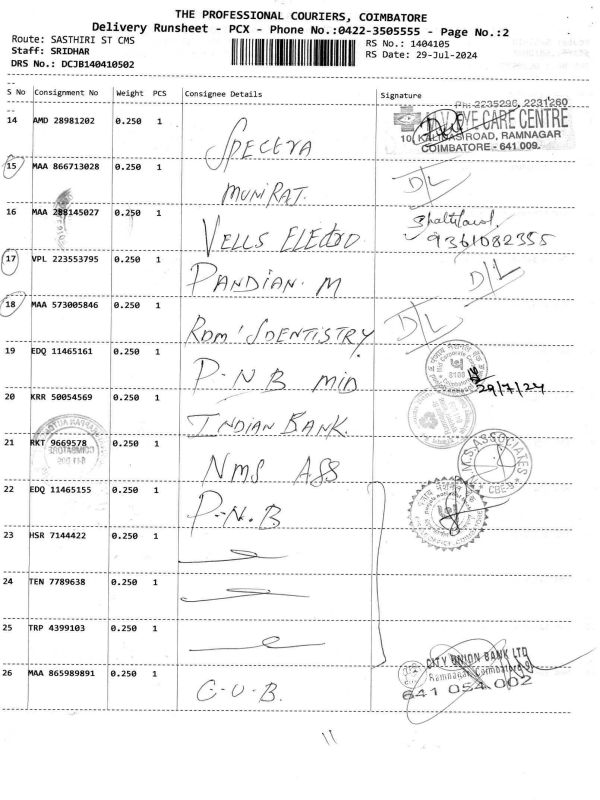 THE PROFESSIONAL COURIERS, COIMBATORE
Delivery Runsheet - PCX - Phone No.:0422-3505555 - Page No.:2
Route: SASTHIRI ST CMS
RS No.: 1404105
Staff: SRIDHAR
RS Date: 29-Jul-2024
DRS No.: DCJB140410502
S No Consignment No Weight PCS Consignee Details Signature
Ph: 2235296, 2231260
EYE CARE CENTRE
14 AMD 28981202 0.250 1 SPECTRA
10, KALINGARAYAN ROAD, RAMNAGAR
COIMBATORE - 641 009.
15 MAA 866713028 0.250 1 MUNIRAT. D/L
16 MAA 288145027 0.250 1 VELLS ELECTOD
9361082355
17 VPL 223553795 0.250 1 PANDIAN. M D/L
18 MAA 573005846 0.250 1 RDM'S DENTISTRY D/L
19 EDQ 11465161 0.250 1 P-N B MID
29/7/24
20 KRR 50054569 0.250 1 INDIAN BANK.
21 RKT 9669578 0.250 1 NMS ASS
M.S. ASSOCIATES
CBE-9
22 EDQ 11465155 0.250 1 P-N.B
23 HSR 7144422 0.250 1
24 TEN 7789638 0.250 1
25 TRP 4399103 0.250 1
CITY UNION BANK LTD
Ramnagar, Coimbatore-9
26 MAA 865989891 0.250 1 C-U-B.
641 054 002
11